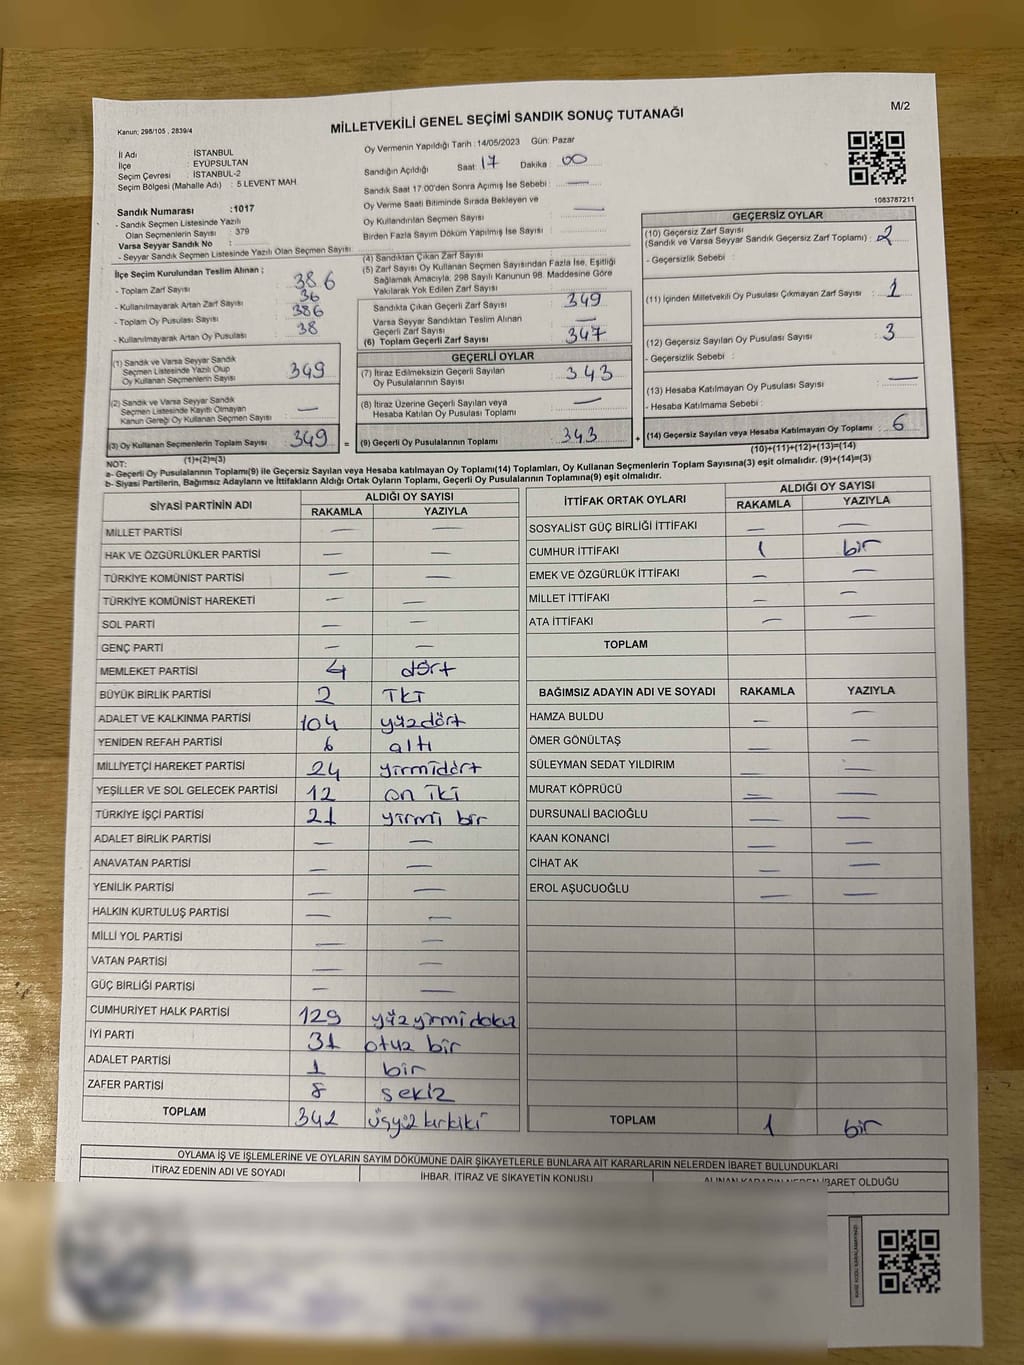 M/2
Kanun; 298/105 , 2839/4
MİLLETVEKİLİ GENEL SEÇİMİ SANDIK SONUÇ TUTANAĞI
İl Adı : İSTANBUL
İlçe : EYÜPSULTAN
Seçim Çevresi : İSTANBUL-2
Seçim Bölgesi (Mahalle Adı) : 5 LEVENT MAH
Sandık Numarası :1017
- Sandık Seçmen Listesinde Yazılı
Olan Seçmenlerin Sayısı : 379
Varsa Seyyar Sandık No :
- Seyyar Sandık Seçmen Listesinde Yazılı Olan Seçmen Sayısı
İlçe Seçim Kurulundan Teslim Alınan ;
- Toplam Zarf Sayısı : 386
- Kullanılmayarak Artan Zarf Sayısı 36
- Toplam Oy Pusulası Sayısı 386
- Kullanılmayarak Artan Oy Pusulası 38
(1) Sandık ve Varsa Seyyar Sandık
Seçmen Listesinde Yazılı Olup
Oy Kullanan Seçmenlerin Sayısı : 349
(2) Sandık ve Varsa Seyyar Sandık
Seçmen Listesinde Kayıtlı Olmayan
Kanun Gereği Oy Kullanan Seçmen Sayısı : —
(3) Oy Kullanan Seçmenlerin Toplam Sayısı : 349 =
(1)+(2)=(3)
Oy Vermenin Yapıldığı Tarih : 14/05/2023 Gün: Pazar
Sandığın Açıldığı Saat : 17 Dakika : 00
Sandık Saat 17.00'den Sonra Açımış İse Sebebi : —
Oy Verme Saati Bitiminde Sırada Bekleyen ve
Oy Kullandırılan Seçmen Sayısı : —
Birden Fazla Sayım Döküm Yapılmış İse Sayısı :
(4) Sandıktan Çıkan Zarf Sayısı :
(5) Zarf Sayısı Oy Kullanan Seçmen Sayısından Fazla İse, Eşitliği
Sağlamak Amacıyla; 298 Sayılı Kanunun 98. Maddesine Göre
Yakılarak Yok Edilen Zarf Sayısı :
Sandıkta Çıkan Geçerli Zarf Sayısı : 349
Varsa Seyyar Sandıktan Teslim Alınan
Geçerli Zarf Sayısı : —
(6) Toplam Geçerli Zarf Sayısı : 347
GEÇERLİ OYLAR
(7) İtiraz Edilmeksizin Geçerli Sayılan
Oy Pusulalarının Sayısı : 343
(8) İtiraz Üzerine Geçerli Sayılan veya
Hesaba Katılan Oy Pusulası Toplamı : —
(9) Geçerli Oy Pusulalarının Toplamı : 343 +
1083787211
GEÇERSİZ OYLAR
(10) Geçersiz Zarf Sayısı
(Sandık ve Varsa Seyyar Sandık Geçersiz Zarf Toplamı) : 2
- Geçersizlik Sebebi :
(11) İçinden Milletvekili Oy Pusulası Çıkmayan Zarf Sayısı : 1
(12) Geçersiz Sayılan Oy Pusulası Sayısı : 3
- Geçersizlik Sebebi :
(13) Hesaba Katılmayan Oy Pusulası Sayısı : —
- Hesaba Katılmama Sebebi :
(14) Geçersiz Sayılan veya Hesaba Katılmayan Oy Toplamı : 6
(10)+(11)+(12)+(13)=(14)
NOT:
a- Geçerli Oy Pusulalarının Toplamı(9) ile Geçersiz Sayılan veya Hesaba katılmayan Oy Toplamı(14) Toplamları, Oy Kullanan Seçmenlerin Toplam Sayısına(3) eşit olmalıdır. (9)+(14)=(3)
b- Siyasi Partilerin, Bağımsız Adayların ve İttifakların Aldığı Ortak Oyların Toplamı, Geçerli Oy Pusulalarının Toplamına(9) eşit olmalıdır.
SİYASİ PARTİNİN ADI ALDIĞI OY SAYISI
RAKAMLA YAZIYLA
MİLLET PARTİSİ — —
HAK VE ÖZGÜRLÜKLER PARTİSİ — —
TÜRKİYE KOMÜNİST PARTİSİ — —
TÜRKİYE KOMÜNİST HAREKETİ — —
SOL PARTİ — —
GENÇ PARTİ — —
MEMLEKET PARTİSİ 4 dört
BÜYÜK BİRLİK PARTİSİ 2 İKİ
ADALET VE KALKINMA PARTİSİ 104 yüzdört
YENİDEN REFAH PARTİSİ 6 altı
MİLLİYETÇİ HAREKET PARTİSİ 24 yirmidört
YEŞİLLER VE SOL GELECEK PARTİSİ 12 on iki
TÜRKİYE İŞÇİ PARTİSİ 21 yirmi bir
ADALET BİRLİK PARTİSİ — —
ANAVATAN PARTİSİ — —
YENİLİK PARTİSİ — —
HALKIN KURTULUŞ PARTİSİ — —
MİLLİ YOL PARTİSİ — —
VATAN PARTİSİ — —
GÜÇ BİRLİĞİ PARTİSİ — —
CUMHURİYET HALK PARTİSİ 129 yüzyirmidokuz
İYİ PARTİ 31 otuz bir
ADALET PARTİSİ 1 bir
ZAFER PARTİSİ 8 sekiz
TOPLAM 342 üçyüz kırkiki
İTTİFAK ORTAK OYLARI ALDIĞI OY SAYISI
RAKAMLA YAZIYLA
SOSYALİST GÜÇ BİRLİĞİ İTTİFAKI — —
CUMHUR İTTİFAKI 1 bir
EMEK VE ÖZGÜRLÜK İTTİFAKI — —
MİLLET İTTİFAKI — —
ATA İTTİFAKI — —
TOPLAM
BAĞIMSIZ ADAYIN ADI VE SOYADI RAKAMLA YAZIYLA
HAMZA BULDU — —
ÖMER GÖNÜLTAŞ — —
SÜLEYMAN SEDAT YILDIRIM — —
MURAT KÖPRÜCÜ — —
DURSUNALİ BACIOĞLU — —
KAAN KONANCI — —
CİHAT AK — —
EROL AŞUCUOĞLU — —
TOPLAM 1 bir
OYLAMA İŞ VE İŞLEMLERİNE VE OYLARIN SAYIM DÖKÜMÜNE DAİR ŞİKAYETLERLE BUNLARA AİT KARARLARIN NELERDEN İBARET BULUNDUKLARI
İTİRAZ EDENİN ADI VE SOYADI İHBAR, İTİRAZ VE ŞİKAYETİN KONUSU ALINAN KARARIN NEDEN İBARET OLDUĞU